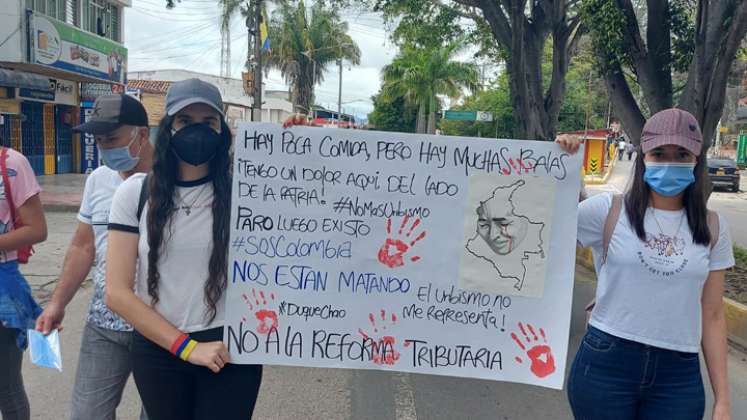 HAY POCA COMIDA, PERO HAY MUCHAS BALAS
¡TENGO UN DOLOR AQUI, DEL LADO
DE LA PATRIA! #NOMASURIBISMO
PARO LUEGO EXISTO
#SOSColombia
NOS ESTAN MATANDO
El Uribismo no
me Representa!
#DuqueChao
NO A LA REFORMA TRIBUTARIA